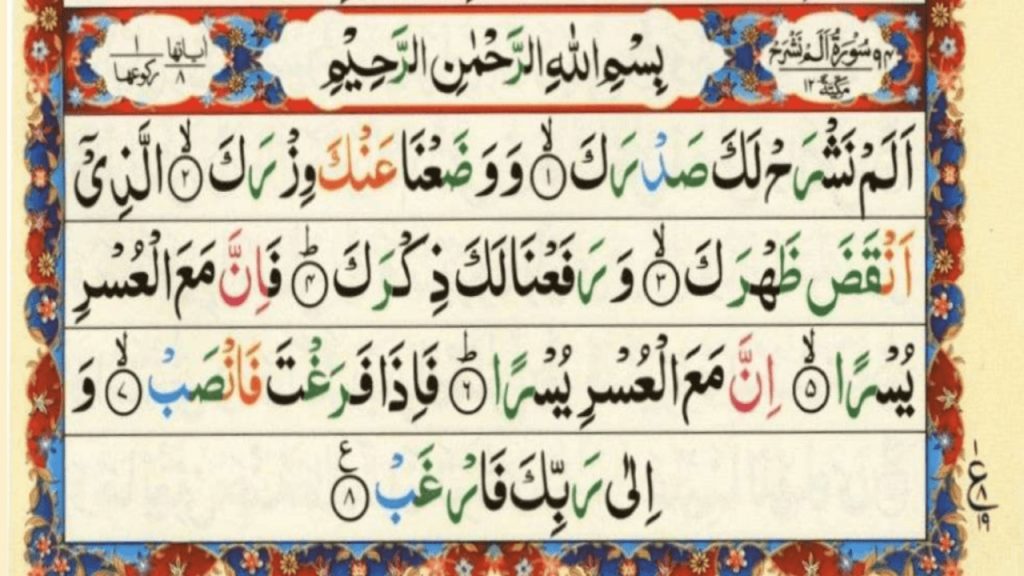 سُوْرَةُ اَلَمْ نَشْرَحْ ٩٤ مَكِّيَّةٌ ١٢
بِسْمِ اللهِ الرَّحْمٰنِ الرَّحِيْمِ
اٰيَاتُهَا ٨ رُكُوْعُهَا ١
اَلَمْ نَشْرَحْ لَكَ صَدْرَكَ ۙ﴿١﴾ وَوَضَعْنَا عَنْكَ وِزْرَكَ ۙ﴿٢﴾ الَّذِيْۤ
اَنْقَضَ ظَهْرَكَ ۙ﴿٣﴾ وَرَفَعْنَا لَكَ ذِكْرَكَ ؕ﴿٤﴾ فَاِنَّ مَعَ الْعُسْرِ
يُسْرًا ۙ﴿٥﴾ اِنَّ مَعَ الْعُسْرِ يُسْرًا ؕ﴿٦﴾ فَاِذَا فَرَغْتَ فَانْصَبْ ۙ﴿٧﴾ وَ
اِلٰى رَبِّكَ فَارْغَبْ ﴿٨﴾ع
١
ع
٨
١٩